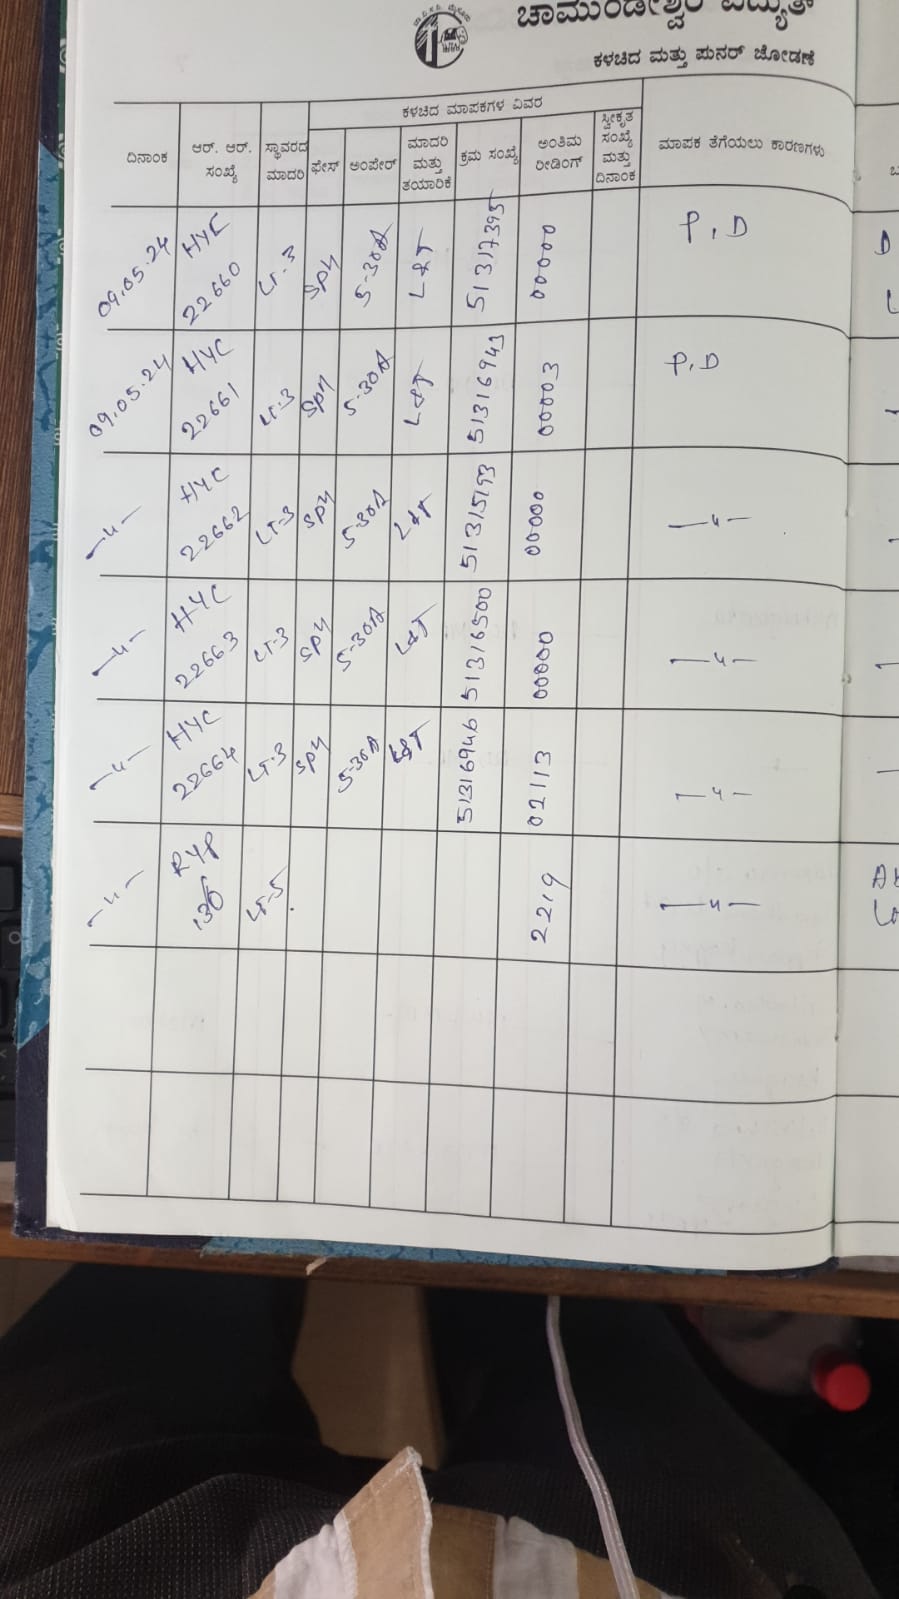 ಚಾಮುಂಡೇಶ್ವರಿ ವಿದ್ಯುತ್
ಕಳಚಿದ ಮತ್ತು ಪುನರ್ ಜೋಡಣೆ
ದಿನಾಂಕ ಆರ್. ಆರ್. ಸಂಖ್ಯೆ ಸ್ಥಾವರದ ಮಾದರಿ ಕಳಚಿದ ಮಾಪಕಗಳ ವಿವರ ಮಾಪಕ ತೆಗೆಯಲು ಕಾರಣಗಳು
ಫೇಸ್ ಅಂಪೇರ್ ಮಾದರಿ ಮತ್ತು ತಯಾರಿಕೆ ಕ್ರಮ ಸಂಖ್ಯೆ ಅಂತಿಮ ರೀಡಿಂಗ್ ಸ್ವೀಕೃತ ಸಂಖ್ಯೆ ಮತ್ತು ದಿನಾಂಕ
09.05.24 HYC 22660 LT-3 SPH 5-30A L&T 51317395 00000 P.D
09.05.24 HYC 22661 LT-3 SPH 5-30A L&T 51316941 00003 P.D
—"— HYC 22662 LT-3 SPH 5-30A L&T 51315193 00000 —"—
—"— HYC 22663 LT-3 SPH 5-30A L&T 51316500 00000 —"—
—"— HYC 22664 LT-3 SPH 5-30A L&T 51316946 02113 —"—
—"— RYP LT-5 2219 —"—